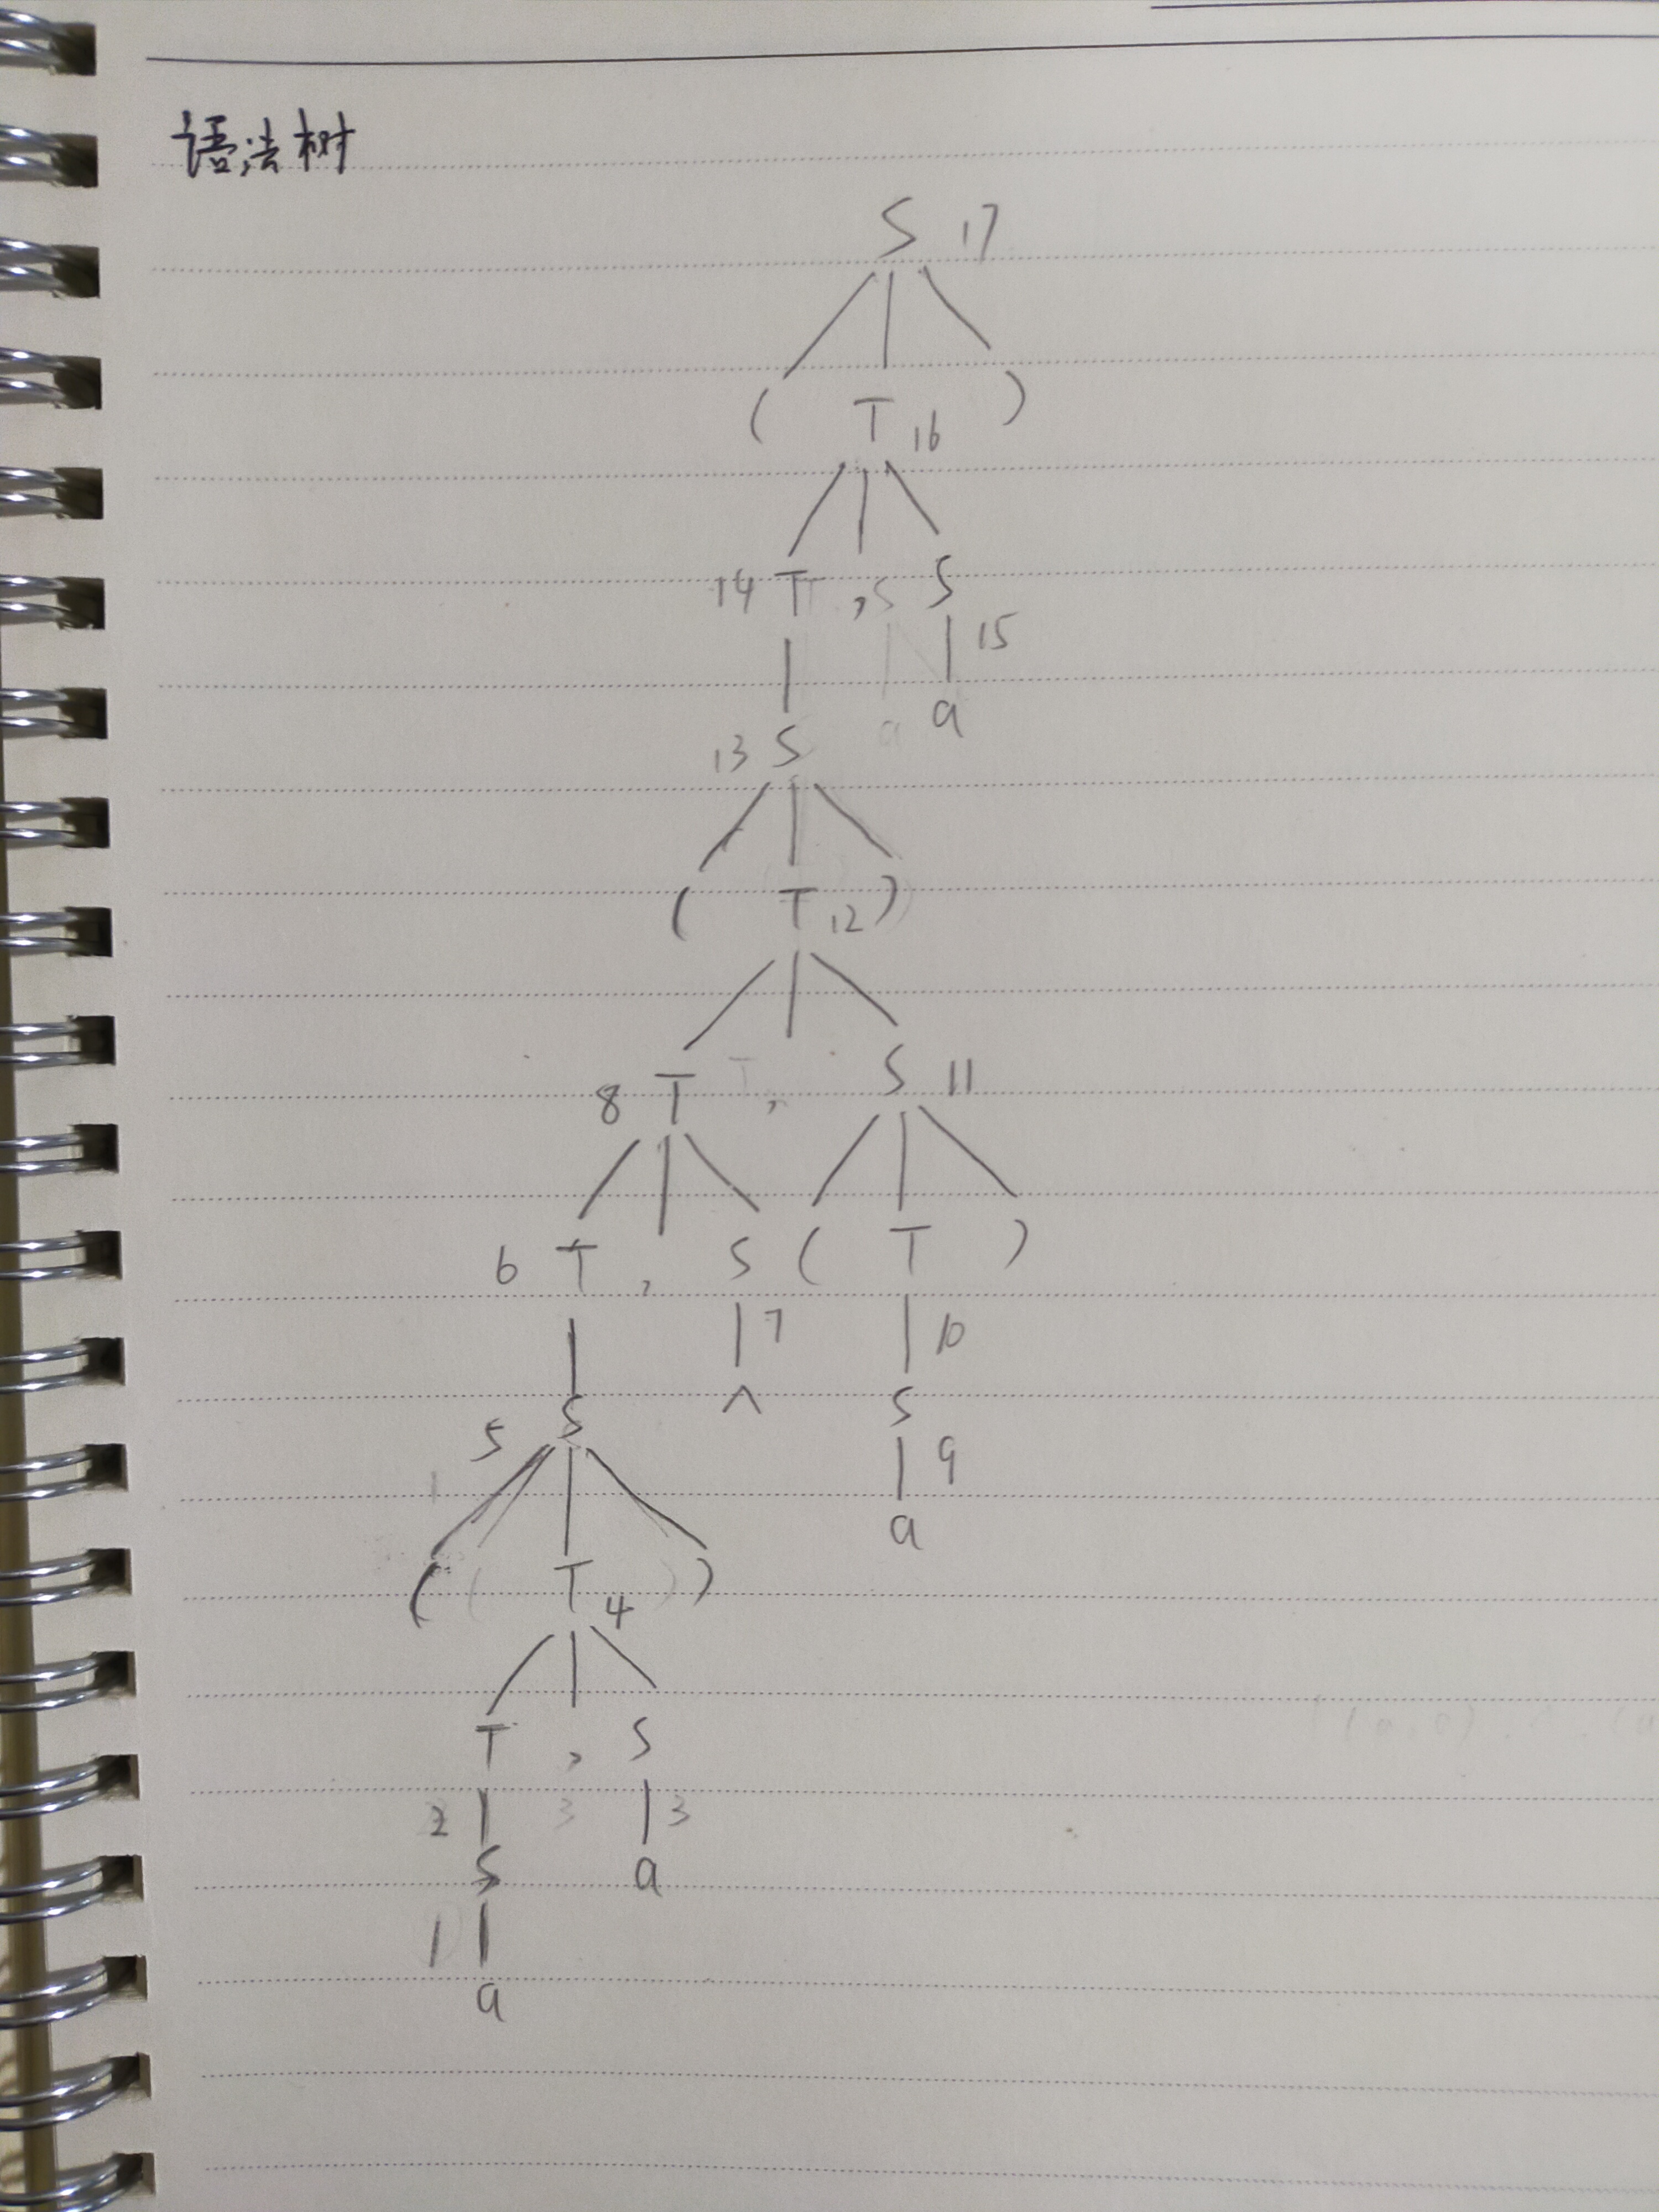 语法树
S 17
( T 16 )
14 T , S
15
a
13 S
( T 12 )
8 T , S 11
6 T , S ( T )
7 10
S ^ S
5
9
a
( T 4 )
T , S
2 3
S a
1
a